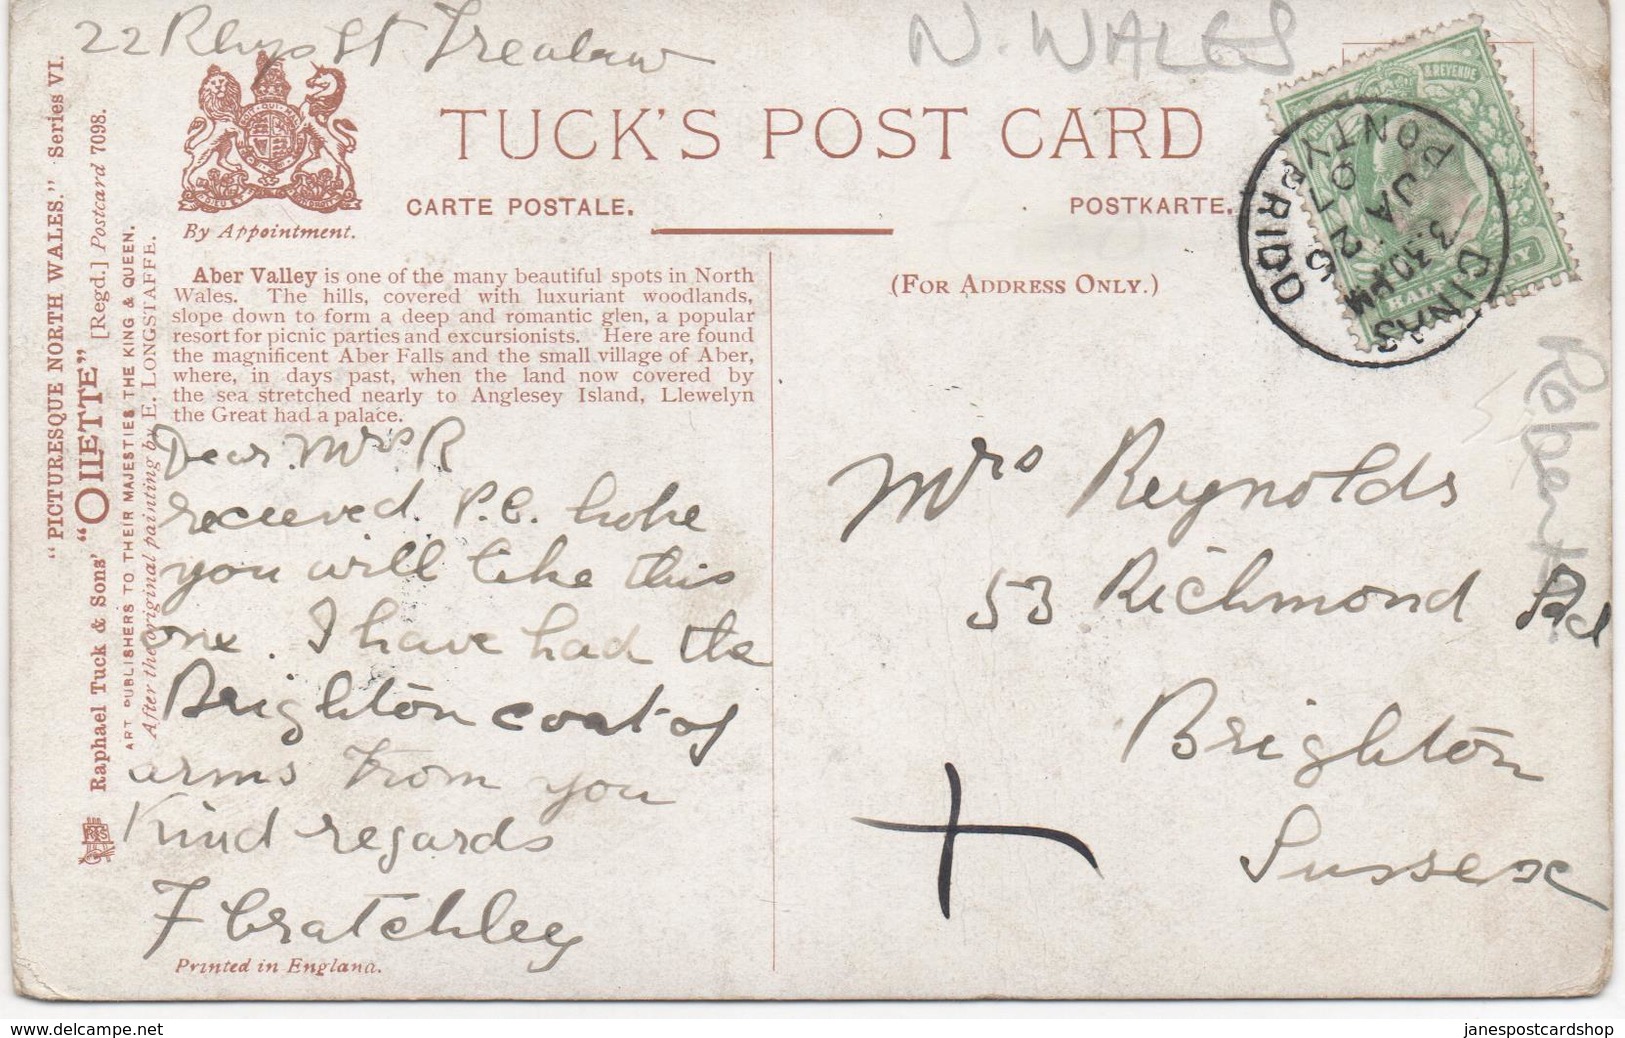 22 Rhys St Trealaw
N. WALES
TUCK'S POST CARD
CARTE POSTALE.
POSTKARTE.
By Appointment.
(FOR ADDRESS ONLY.)
"PICTURESQUE NORTH WALES." Series VI.
Raphael Tuck & Sons' "OILETTE" [Regd.] Postcard 7098.
ART PUBLISHERS TO THEIR MAJESTIES THE KING & QUEEN.
After the original painting by E. LONGSTAFFE.
Aber Valley is one of the many beautiful spots in North
Wales. The hills, covered with luxuriant woodlands,
slope down to form a deep and romantic glen, a popular
resort for picnic parties and excursionists. Here are found
the magnificent Aber Falls and the small village of Aber,
where, in days past, when the land now covered by
the sea stretched nearly to Anglesey Island, Llewelyn
the Great had a palace.
Dear Mrs R
received P.C. hope
you will like this
one. I have had the
Brighton coat of
arms from you
Kind regards
F Cratchley
Printed in England.
DINAS
PONTYPRIDD
3.30 PM
JA 2
& REVENUE
HALF
Mrs Reynolds
53 Richmond Rd
Brighton
Sussex
www.delcampe.net
janespostcardshop